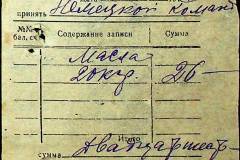 Немецкой коман
принять
№№ бал. сч. Содержание записи Сумма
Масла
20 кгр. 26 —
Итого
сумма Двадцать